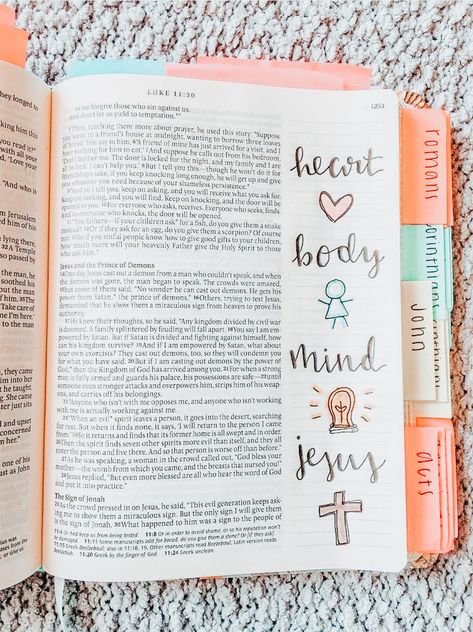 they longed to
'Love your
"And who is
LUKE 11:30
1253
as we forgive those who sin against us.
And don't let us yield to temptation."
Then, teaching them more about prayer, he used this story: "Suppose
you went to a friend's house at midnight, wanting to borrow three loaves
of bread. You say to him, 6'A friend of mine has just arrived for a visit, and I
have nothing for him to eat.' 7And suppose he calls out from his bedroom,
'Don't bother me. The door is locked for the night, and my family and I are
all in bed. I can't help you.' 8But I tell you—though he won't do it for
friendship's sake, if you keep knocking long enough, he will get up and give
you whatever you need because of your shameless persistence.
9"And so I tell you, keep on asking, and you will receive what you ask for.
Keep on seeking, and you will find. Keep on knocking, and the door will be
opened to you. 10For everyone who asks, receives. Everyone who seeks, finds.
And to everyone who knocks, the door will be opened.
11"You fathers—if your children ask for a fish, do you give them a snake
instead? 12Or if they ask for an egg, do you give them a scorpion? Of course
not! 13So if you sinful people know how to give good gifts to your children,
how much more will your heavenly Father give the Holy Spirit to those
who ask him."
Jesus and the Prince of Demons
14One day Jesus cast out a demon from a man who couldn't speak, and when
the demon was gone, the man began to speak. The crowds were amazed,
15but some of them said, "No wonder he can cast out demons. He gets his
power from Satan, the prince of demons." 16Others, trying to test Jesus,
demanded that he show them a miraculous sign from heaven to prove his
authority.
17He knew their thoughts, so he said, "Any kingdom divided by civil war
is doomed. A family splintered by feuding will fall apart. 18You say I am
empowered by Satan. But if Satan is divided and fighting against himself, how
can his kingdom survive? 19And if I am empowered by Satan, what about
your own exorcists? They cast out demons, too, so they will condemn you
for what you have said. 20But if I am casting out demons by the power of
God, then the Kingdom of God has arrived among you. 21For when a strong
man is fully armed and guards his palace, his possessions are safe—22until
someone even stronger attacks and overpowers him, strips him of his weap-
ons, and carries off his belongings.
23"Anyone who isn't with me opposes me, and anyone who isn't working
with me is actually working against me.
24"When an evil spirit leaves a person, it goes into the desert, searching
for rest. But when it finds none, it says, 'I will return to the person I came
from.' 25So it returns and finds that its former home is all swept and in order.
26Then the spirit finds seven other spirits more evil than itself, and they all
enter the person and live there. And so that person is worse off than before."
27As he was speaking, a woman in the crowd called out, "God bless your
mother—the womb from which you came, and the breasts that nursed you!"
28Jesus replied, "But even more blessed are all who hear the word of God
and put it into practice."
The Sign of Jonah
29As the crowd pressed in on Jesus, he said, "This evil generation keeps ask-
ing me to show them a miraculous sign. But the only sign I will give them
is the sign of Jonah. 30What happened to him was a sign to the people of
heart
body
mind
jesus
romans
John
acts